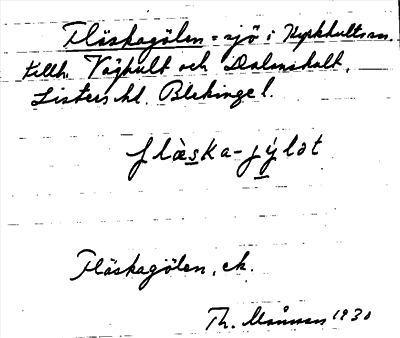 Fläskagölen = sjö i Kyrkhults sn.
tillh. Väghult och Dalanshult,
Listers hd. Blekinge l.
flàska-jy̌lǝt
Fläskagölen, ek.
Th. Månsson 1930